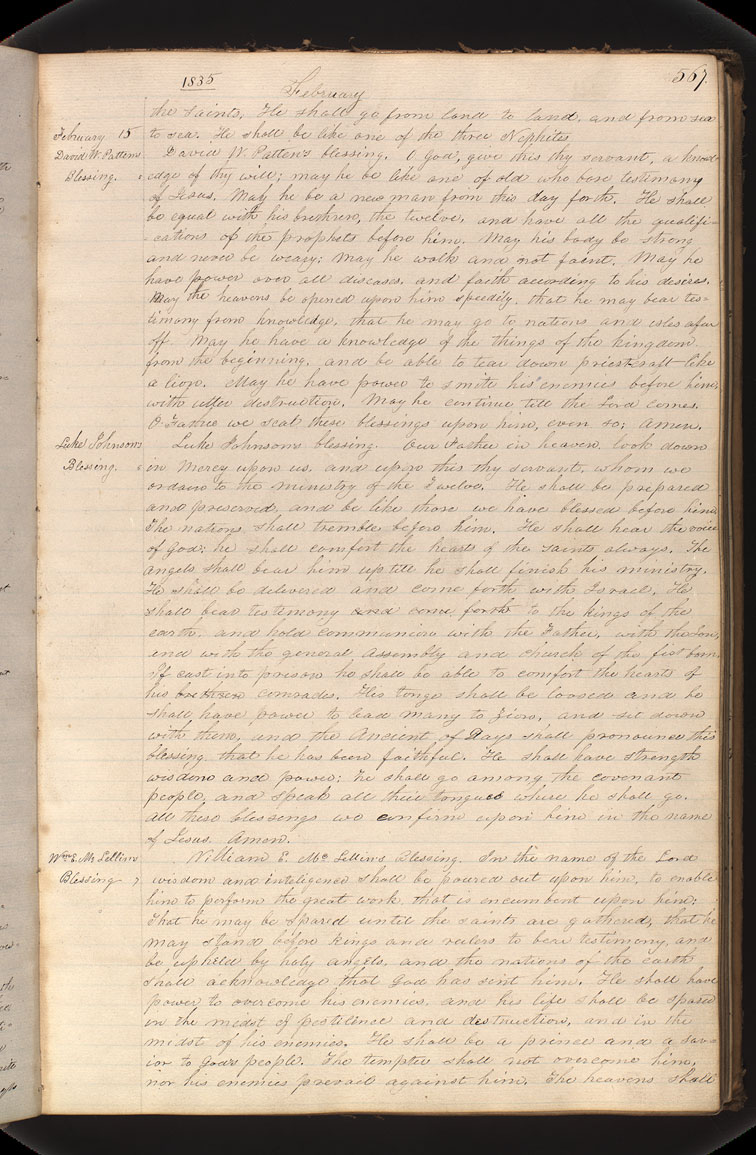 1835
February
567.
the saints. He shall go from land to land, and from sea
February 15
to sea. He shall be like one of the three Nephites
David W. Pattens
Blessing.
David W. Patten's blessing. O God, give this thy servant, a knowl-
edge of thy will; may he be like one of old who bore testimony
of Jesus. May he be a new man from this day forth. He shall
be equal with his brethren, the twelve, and have all the qualifi-
-cations of the prophets before him. May his body be strong
and never be weary; may he walk and not faint. May he
have power over all diseases, and faith according to his desires.
May the heavens be opened upon him speedily, that he may bear tes-
timony from knowledge, that he may go to nations and isles afar
off. May he have a knowledge of the things of the kingdom
from the beginning, and be able to tear down priestcraft like
a lion. May he have power to smite his enemies before him,
with utter destruction. May he continue till the Lord comes.
O Father we seal these blessings upon him, even so; Amen.
Luke Johnsons
Blessing.
Luke Johnsons blessing. Our Father in heaven, look down
in mercy upon us, and upon this thy servant, whom we
ordain to the ministry of the Twelve. He shall be prepared
and preserved, and be like those we have blessed before him.
The nations shall tremble before him. He shall hear the voice
of God; he shall comfort the hearts of the saints always. The
angels shall bear him up till he shall finish his ministry.
He shall be delivered and come forth with Israel. He
shall bear testimony and come forth to the kings of the
earth, and hold communion with the Father, with the Son,
and with the general assembly and church of the first born.
If cast into prison he shall be able to comfort the hearts of
his brethren comrades. His tonge shall be loosed and he
shall have power to lead many to Zion, and sit down
with them, and the Ancient of Days shall pronounce this
blessing, that he has been faithful. He shall have strength
wisdom and power; he shall go among the covenant
people, and speak all their tongues where he shall go.
All these blessings we confirm upon him in the name
of Jesus. Amen.
Wm E. Mc Lellins
Blessing
William E. Mc Lellin's Blessing. In the name of the Lord
wisdom and inteligence shall be poured out upon him, to enable
him to perform the great work that is encumbent upon him;
That he may be spared until the saints are gathered, that he
may stand before kings and rulers to bear testimony, and
be upheld by holy angels, and the nations of the earth
shall acknowledge that God has sent him. He shall have
power to overcome his enemies, and his life shall be spared
in the midst of pestilence and destruction, and in the
midst of his enemies. He shall be a prince and a sav-
ior to God's people. The tempter shall not overcome him,
nor his enemies prevail against him. The heavens shall